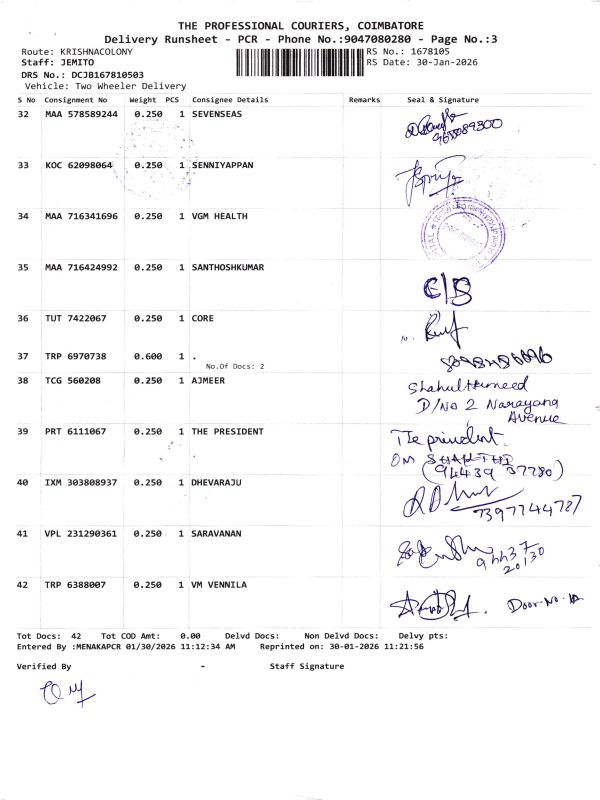 THE PROFESSIONAL COURIERS, COIMBATORE
Delivery Runsheet - PCR - Phone No.:9047080280 - Page No.:3
Route: KRISHNACOLONY RS No.: 1678105
Staff: JEMITO RS Date: 30-Jan-2026
DRS No.: DCJB167810503
Vehicle: Two Wheeler Delivery
S No Consignment No Weight PCS Consignee Details Remarks Seal & Signature
32 MAA 578589244 0.250 1 SEVENSEAS
33 KOC 62098064 0.250 1 SENNIYAPPAN
34 MAA 716341696 0.250 1 VGM HEALTH
35 MAA 716424992 0.250 1 SANTHOSHKUMAR
C/B
36 TUT 7422067 0.250 1 CORE
37 TRP 6970738 0.600 1 .
No.Of Docs: 2
38 TCG 560208 0.250 1 AJMEER Shahul Hameed
D/No 2 Narayana
Avenue
39 PRT 6111067 0.250 1 THE PRESIDENT The president.
OM SHAKTHI
(94439 37780)
40 IXM 303808937 0.250 1 DHEVARAJU
7397744787
41 VPL 231290361 0.250 1 SARAVANAN
94437
20130
42 TRP 6388007 0.250 1 VM VENNILA
Door No.
Tot Docs: 42 Tot COD Amt: 0.00 Delvd Docs: Non Delvd Docs: Delvy pts:
Entered By :MENAKAPCR 01/30/2026 11:12:34 AM Reprinted on: 30-01-2026 11:21:56
Verified By - Staff Signature